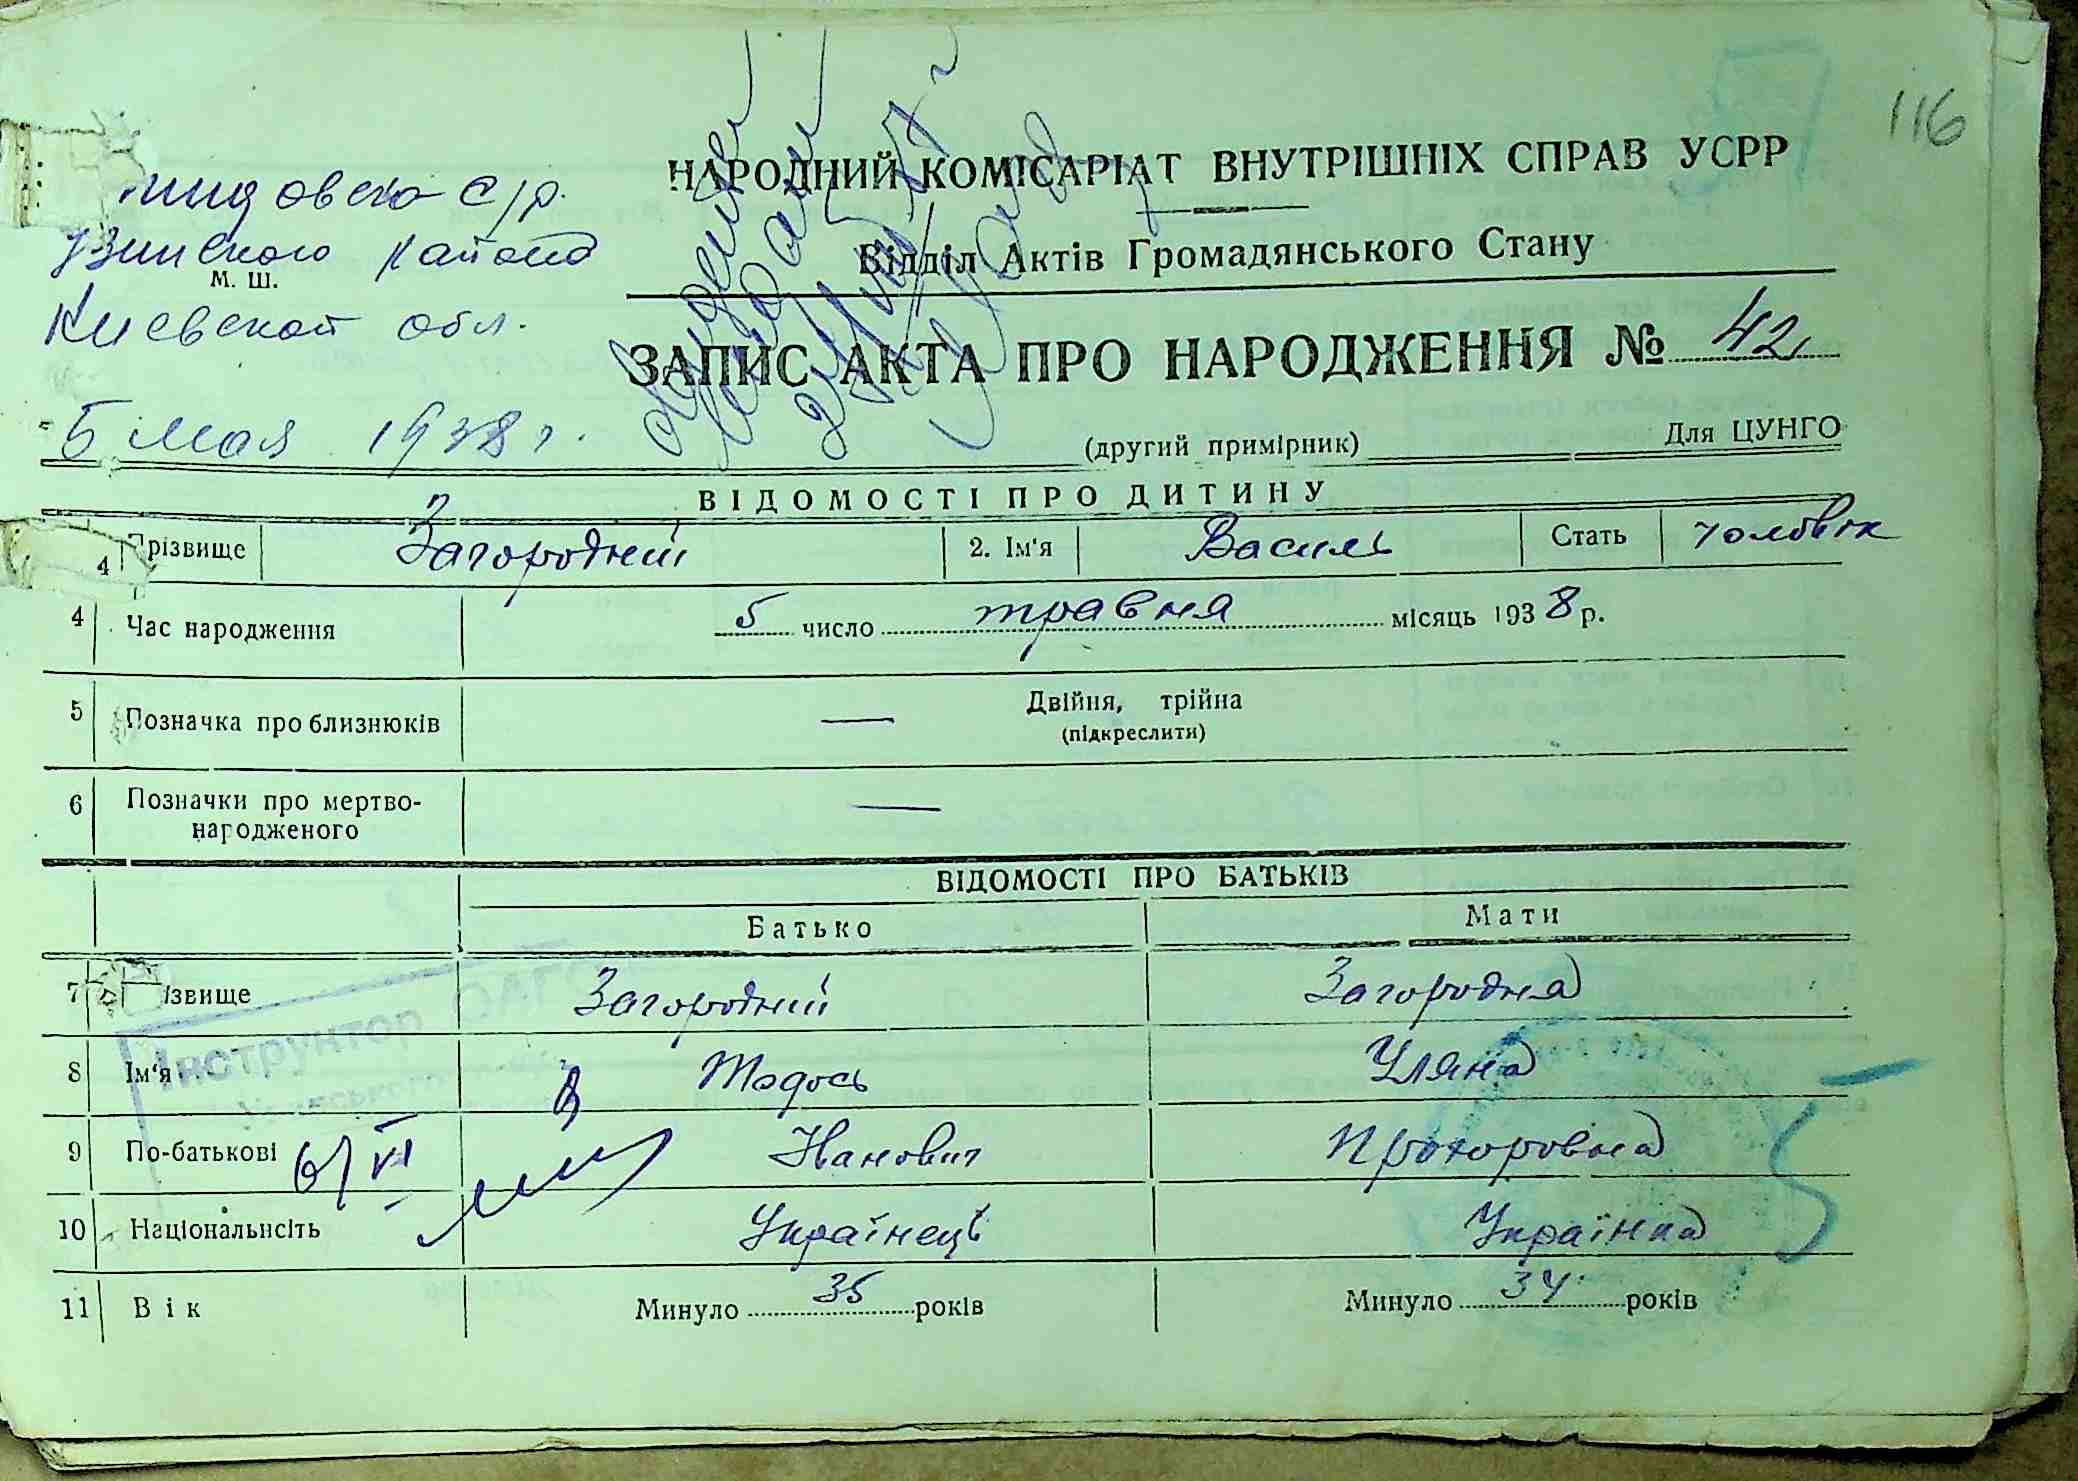 116
НАРОДНИЙ КОМІСАРІАТ ВНУТРІШНІХ СПРАВ УСРР
с/р.
Узинского района
М. Ш.
Киевской обл.
Відділ Актів Громадянського Стану
ЗАПИС АКТА ПРО НАРОДЖЕННЯ № 42
5 мая 1938 г.
(другий примірник) Для ЦУНГО
ВІДОМОСТІ ПРО ДИТИНУ
Прізвище Загородній 2. Ім'я Василь Стать чоловік
4 Час народження 5 число травня місяць 1938 р.
5 Позначка про близнюків — Двійня, трійна
(підкреслити)
6 Позначки про мертво-
народженого —
ВІДОМОСТІ ПРО БАТЬКІВ
Батько Мати
7 ізвище Загородній Загородня
Інструктор
8 Ім'я Тодось Уляна
9 По-батькові Іванович Прохоровна
6/VI
10 Національнсіть Українець Українка
11 Вік Минуло 35 років Минуло 34 років